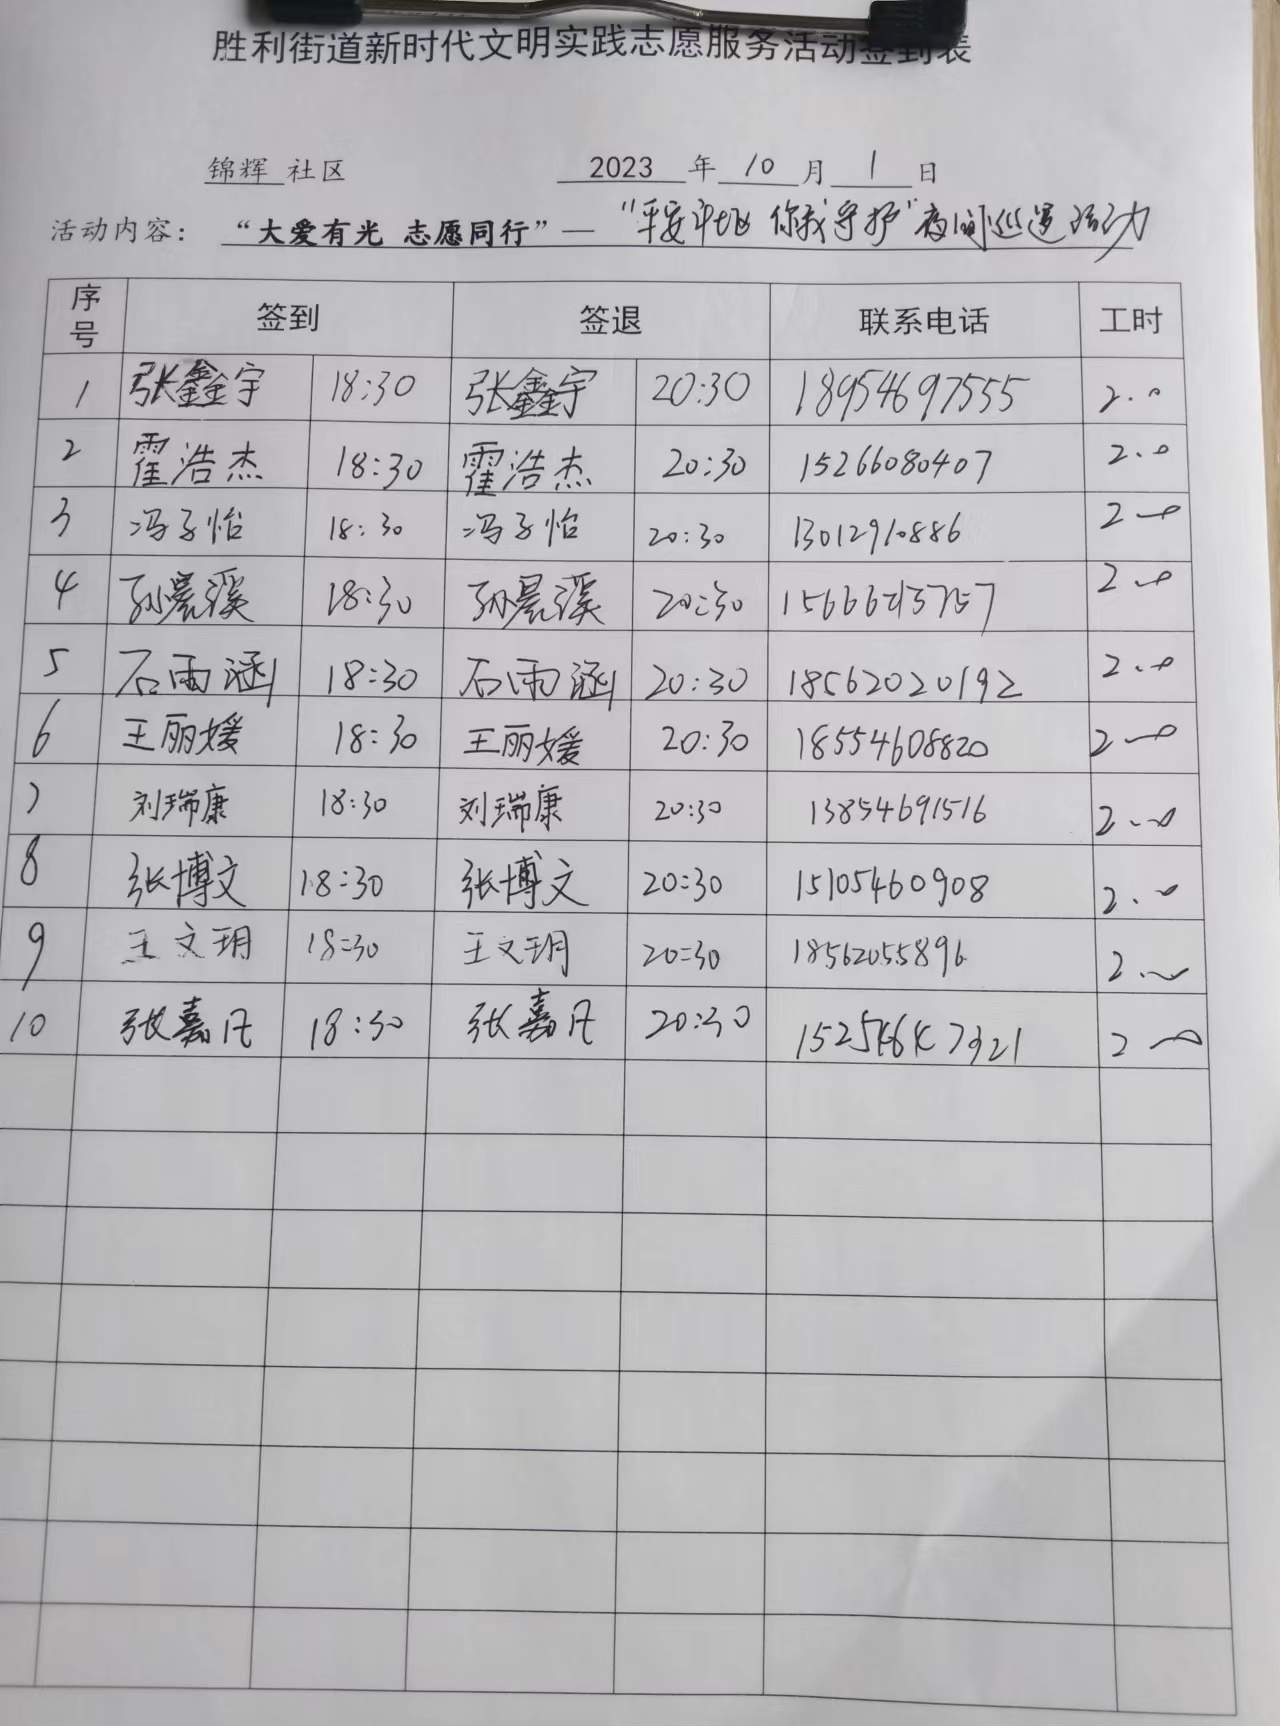 胜利街道新时代文明实践志愿服务活动签到表
锦辉 社区 2023 年 10 月 1 日
活动内容： “大爱有光 志愿同行”— “平安 你我守护”夜间巡逻活动
序号 签到 签退 联系电话 工时
1 张鑫宇 18:30 张鑫宇 20:30 18954697555 2.0
2 霍浩杰 18:30 霍浩杰 20:30 15266080407 2.0
3 冯子怡 18:30 冯子怡 20:30 13012910886 2.0
4 孙晨溪 18:30 孙晨溪 20:30 2.0
5 石雨涵 18:30 石雨涵 20:30 18562020192 2.0
6 王丽媛 18:30 王丽媛 20:30 18554608820 2.0
7 刘瑞康 18:30 刘瑞康 20:30 13854691516 2.0
8 张博文 18:30 张博文 20:30 15105460908 2.0
9 王文玥 18:30 王文玥 20:30 18562055896 2.0
10 张嘉凡 18:30 张嘉凡 20:30 2.0